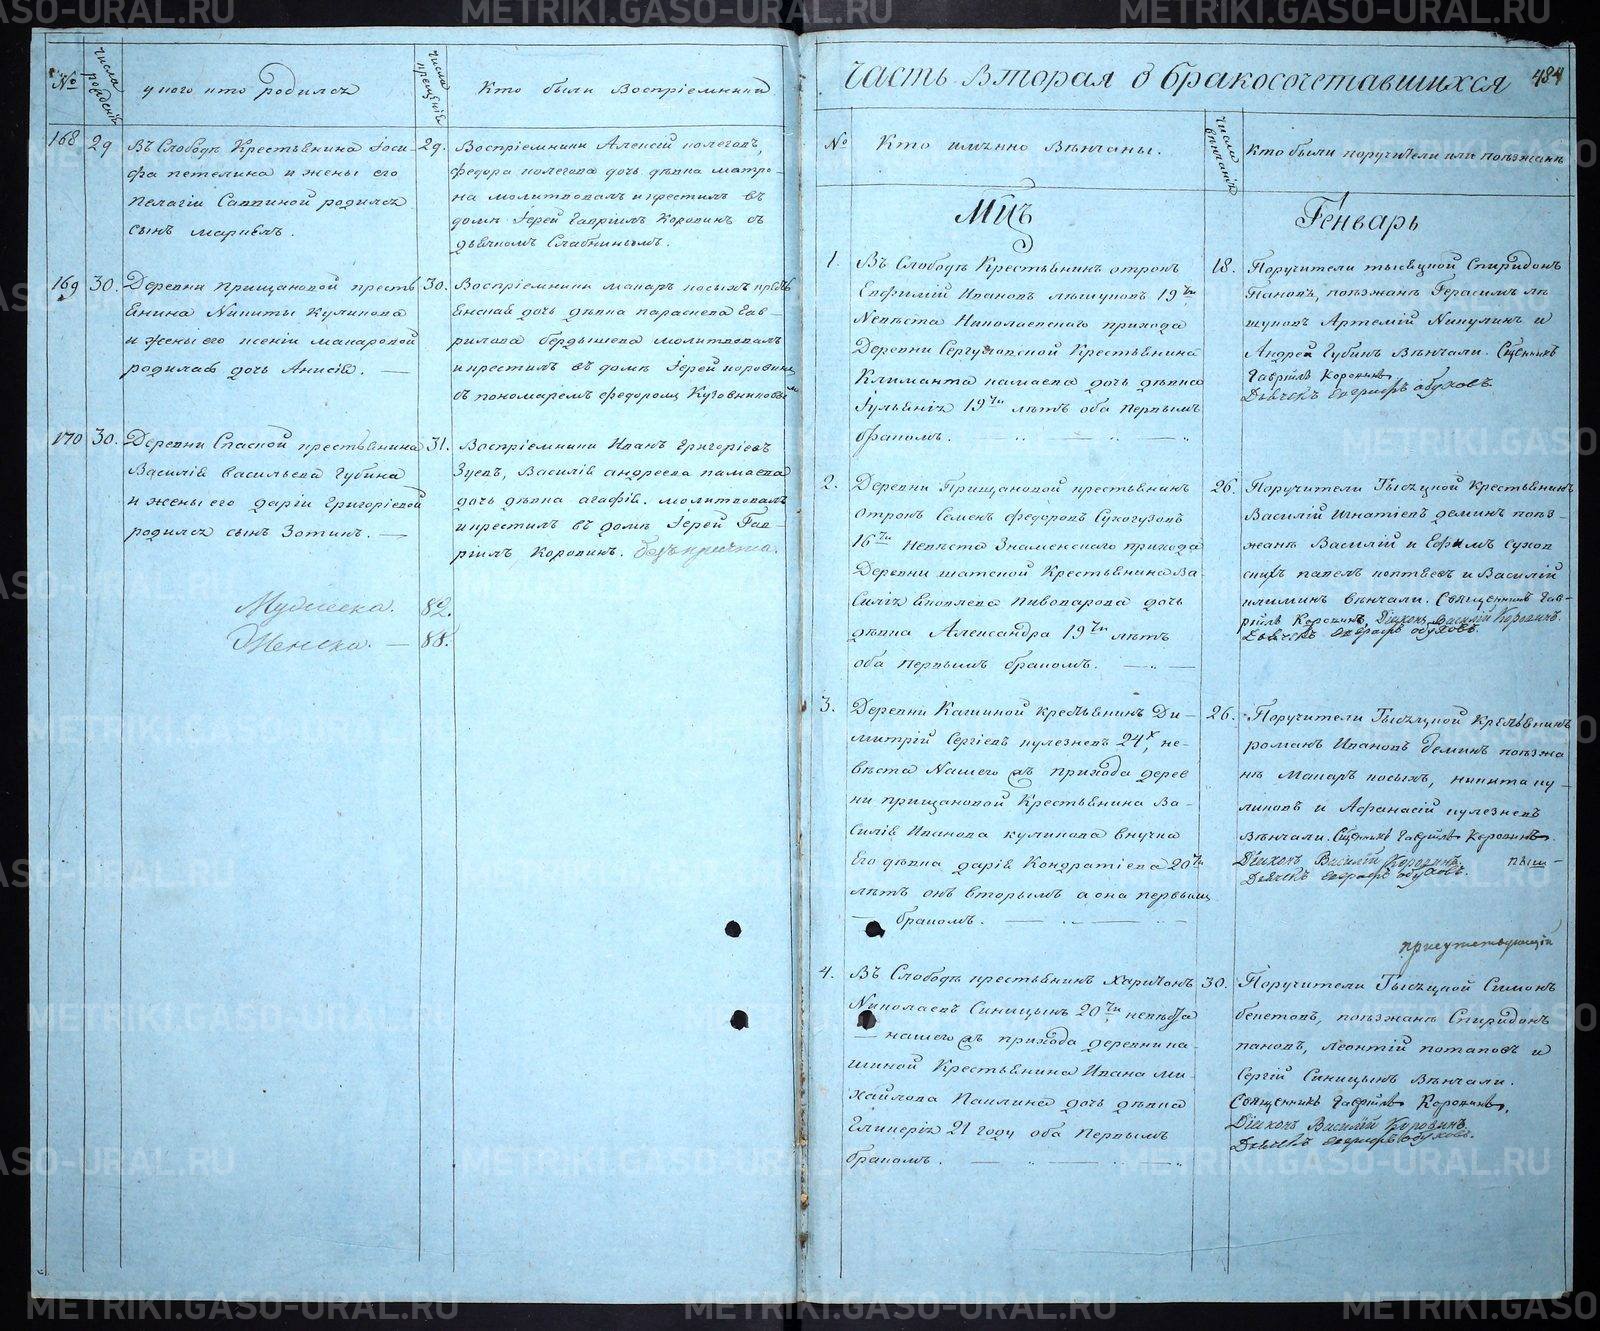 №
числа рожденій
у кого кто родился
числа крещенія
Кто были Воспріемники
168
29
Въ Слободѣ Крестьянина Іоси-
фа петелина и жены его
Пелагіи Саввиной родился
сынъ
29.
Воспріемники Алексій колеговъ,
федора колегова дочь дѣвка матро-
на молитвовалъ и крестилъ въ
домѣ Іерей Гавріилъ Коровинъ съ
дьячкомъ
169
30.
Деревни прищановой кресть-
янина Никиты Куликова
и жены его ксеніи макаровой
родилась дочь Анисія. —
30.
Воспріемники макаръ косыхъ
дочь дѣвка параскева Гав-
рилова бердышева молитвовалъ
и крестилъ въ домѣ Іерей коровинъ
съ пономаремъ федоромъ
170
30.
Деревни Спаской крестьянина
Василія васильева Губина
и жены его даріи Григоріевой
родился сынъ Зотикъ. —
31.
Воспріемники Иванъ Григоріевъ
Зуевъ, Василія андреева памаева
дочь дѣвка агафія. молитвовалъ
и крестилъ въ домѣ Іерей Гав-
ріилъ Коровинъ. безъ причта.
Мужеска. 82.
Женска. — 88.
Часть Вторая о бракосочетавшихся
484
№
Кто имянно Вѣнчаны.
числа вѣнчанія
Кто были поручители или поѣзжане
Мцъ
Генварь
1.
Въ Слободѣ Крестьянинъ отрокъ
Евфимій Ивановъ лѣшуковъ 19ти
Невѣста Николаевскаго прихода
Деревни Крестьянина
Климанта памаева дочь дѣвка
Іульянія 19ти лѣтъ оба первымъ
бракомъ.
18.
Поручители тысяцкой Спиридонъ
Пановъ, поѣзжане Герасимъ лѣ-
шуковъ Артемій Никулинъ и
Андрей Губинъ Вѣнчали. Сщенникъ
Гавріилъ Коровинъ
Дьячекъ обуховъ.
2.
Деревни Прищановой крестьянинъ
отрокъ Семенъ федоровъ Сухогузовъ
16ти Невѣста Знаменскаго прихода
Деревни шатской Крестьянина Ва-
силія Яковлева Пивоварова дочь
дѣвка Александра 19ти лѣтъ
оба первымъ бракомъ. —
26.
Поручители Тысяцкой Крестьянинъ
Василій Игнатіевъ деминъ поѣз-
жане Василій и Ефимъ сухов-
скихъ павелъ коптяевъ и Василій
климинъ вѣнчали. Священникъ Гав-
ріилъ Коровинъ, Діаконъ Василій Коровинъ.
Дьячекъ обуховъ.
3.
Деревни Кашиной крестьянинъ Ди-
митрій Сергіевъ кулезневъ 24х, не-
вѣста Нашего жъ прихода дерев-
ни прищановой Крестьянина Ва-
силія Иванова куликова внучка
Его дѣвка дарія Кондратіева 20ти
лѣтъ онъ вторымъ а она первымъ
— бракомъ. —
26.
Поручители Тысяцкой Крестьянинъ
романъ Ивановъ деминъ поѣзжа-
нѣ Макаръ косыхъ, никита ку-
ликовъ и Афанасій кулезневъ
Вѣнчали. Сщенникъ Гавріилъ Коровинъ
Діаконъ Василій Коровинъ.
Дьячекъ обуховъ.
присутствующій
4.
Въ Слободѣ крестьянинъ Харитонъ
Николаевъ Синицынъ 20ти невѣста
— нашего жъ прихода деревни ка-
шиной Крестьянина Ивана ми-
хайлова Паилина дочь дѣвка
Гликерія 21 году оба Первымъ
бракомъ. —
30.
Поручители Тысяцкой Симонъ
бекетовъ, поѣзжане Спиридонъ
пановъ, леонтій потаповъ и
Сергій Синицынъ Вѣнчали.
Священникъ Гавріилъ Коровинъ,
Діаконъ Василій Коровинъ.
Дьячекъ обуховъ.
METRIKI.GASO-URAL.RU